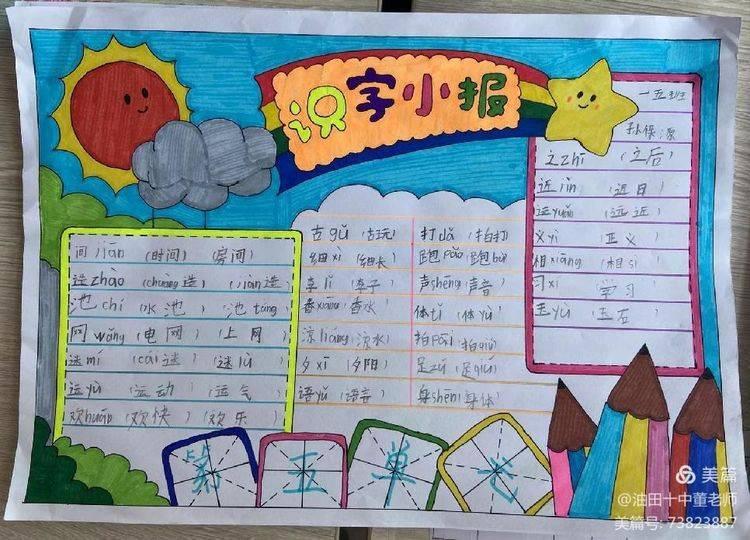 识字小报
一五班
之zhī（之后）
近jìn（近日）
远yuǎn（远近）
义yì（正义）
相xiāng（相sì）
习xí（学习）
玉yù（玉石）
间jiān（时间）（房间）
造zhào（chuang造）（jiàn造）
池chí（水池）（池táng）
网wǎng（电网）（上网）
迷mí（cāi迷）（迷lù）
运yù（运动）（运气）
欢huān（欢快）（欢乐）
古gǔ（古玩）
细xì（细长）
李lǐ（李子）
香xiāng（香水）
凉liáng（凉水）
夕xī（夕阳）
语yǔ（语言）
打dǎ（拍打）
跑pǎo（跑bù）
声shēng（声音）
体tǐ（体yù）
拍pāi（拍qiú）
足zú（足qiú）
身shēn（身体）
第五单元
美篇
@油田十中董老师
美篇号: 73823887